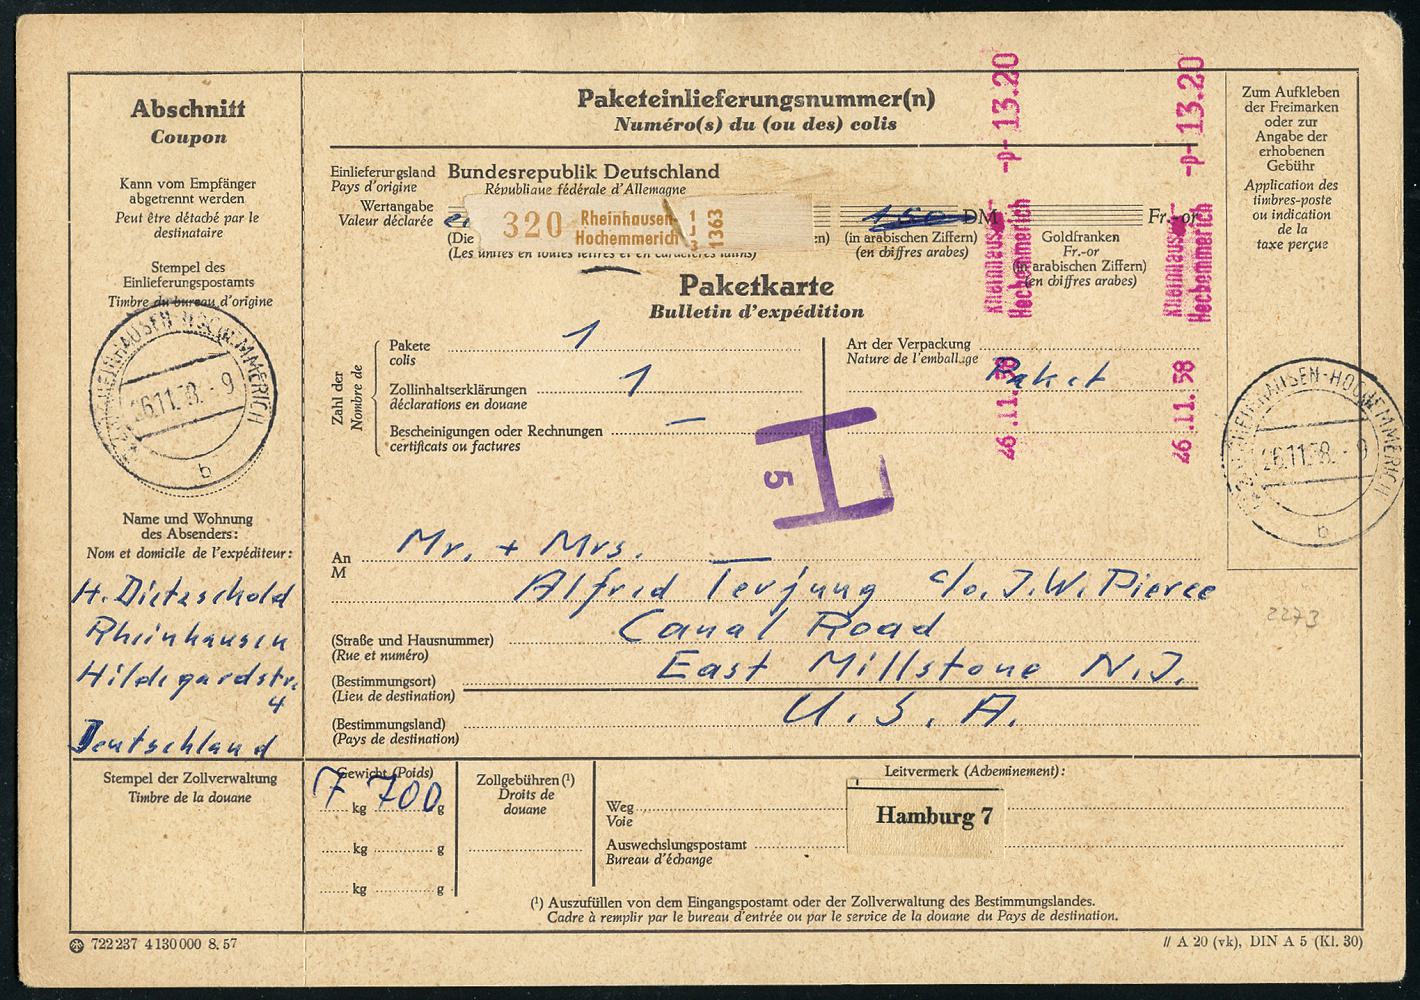 Abschnitt
Coupon
Kann vom Empfänger
abgetrennt werden
Peut être détaché par le
destinataire
Stempel des
Einlieferungspostamts
Timbre du bureau d'origine
RHEINHAUSEN-HOCHEMMERICH
26.11.58.-9
b
Name und Wohnung
des Absenders:
Nom et domicile de l'expéditeur:
H. Dietzschold
Rheinhausen
Hildegardstr.
4
Deutschland
Stempel der Zollverwaltung
Timbre de la douane
Paketeinlieferungsnummer(n)
Numéro(s) du (ou des) colis
Einlieferungsland Bundesrepublik Deutschland
Pays d'origine République fédérale d'Allemagne
Wertangabe
Valeur déclarée
320 Rheinhausen-
Hochemmerich
1363
150 DM
Fr.-or
(Die
en) (in arabischen Ziffern)
(Les unités en toutes lettres et en caractères latins) (en chiffres arabes)
Goldfranken
Fr.-or
(in arabischen Ziffern)
(en chiffres arabes)
Paketkarte
Bulletin d'expédition
Zahl der
Nombre de
Pakete 1
colis
Zollinhaltserklärungen 1
déclarations en douane
Bescheinigungen oder Rechnungen —
certificats ou factures
Art der Verpackung
Nature de l'emballage
Paket
H
5
-p- 13.20
Rheinhausen-
Hochemmerich
26.11.58
-p- 13.20
Rheinhausen-
Hochemmerich
26.11.58
An Mr. + Mrs.
M
Alfred Terjung c/o. J.W. Pierce
(Straße und Hausnummer) Canal Road
(Rue et numéro)
(Bestimmungsort) East Millstone N.J.
(Lieu de destination)
(Bestimmungsland) U.S.A.
(Pays de destination)
Zum Aufkleben
der Freimarken
oder zur
Angabe der
erhobenen
Gebühr
Application des
timbres-poste
ou indication
de la
taxe perçue
RHEINHAUSEN-HOCHEMMERICH
26.11.58.-9
b
2273
Gewicht (Poids)
7 kg 700 g
kg g
kg g
Zollgebühren (¹)
Droits de
douane
Leitvermerk (Acheminement):
Weg
Voie
Hamburg 7
Auswechslungspostamt
Bureau d'échange
(¹) Auszufüllen von dem Eingangspostamt oder der Zollverwaltung des Bestimmungslandes.
Cadre à remplir par le bureau d'entrée ou par le service de la douane du Pays de destination.
722 237 4 130 000 8. 57
// A 20 (vk), DIN A 5 (Kl. 30)